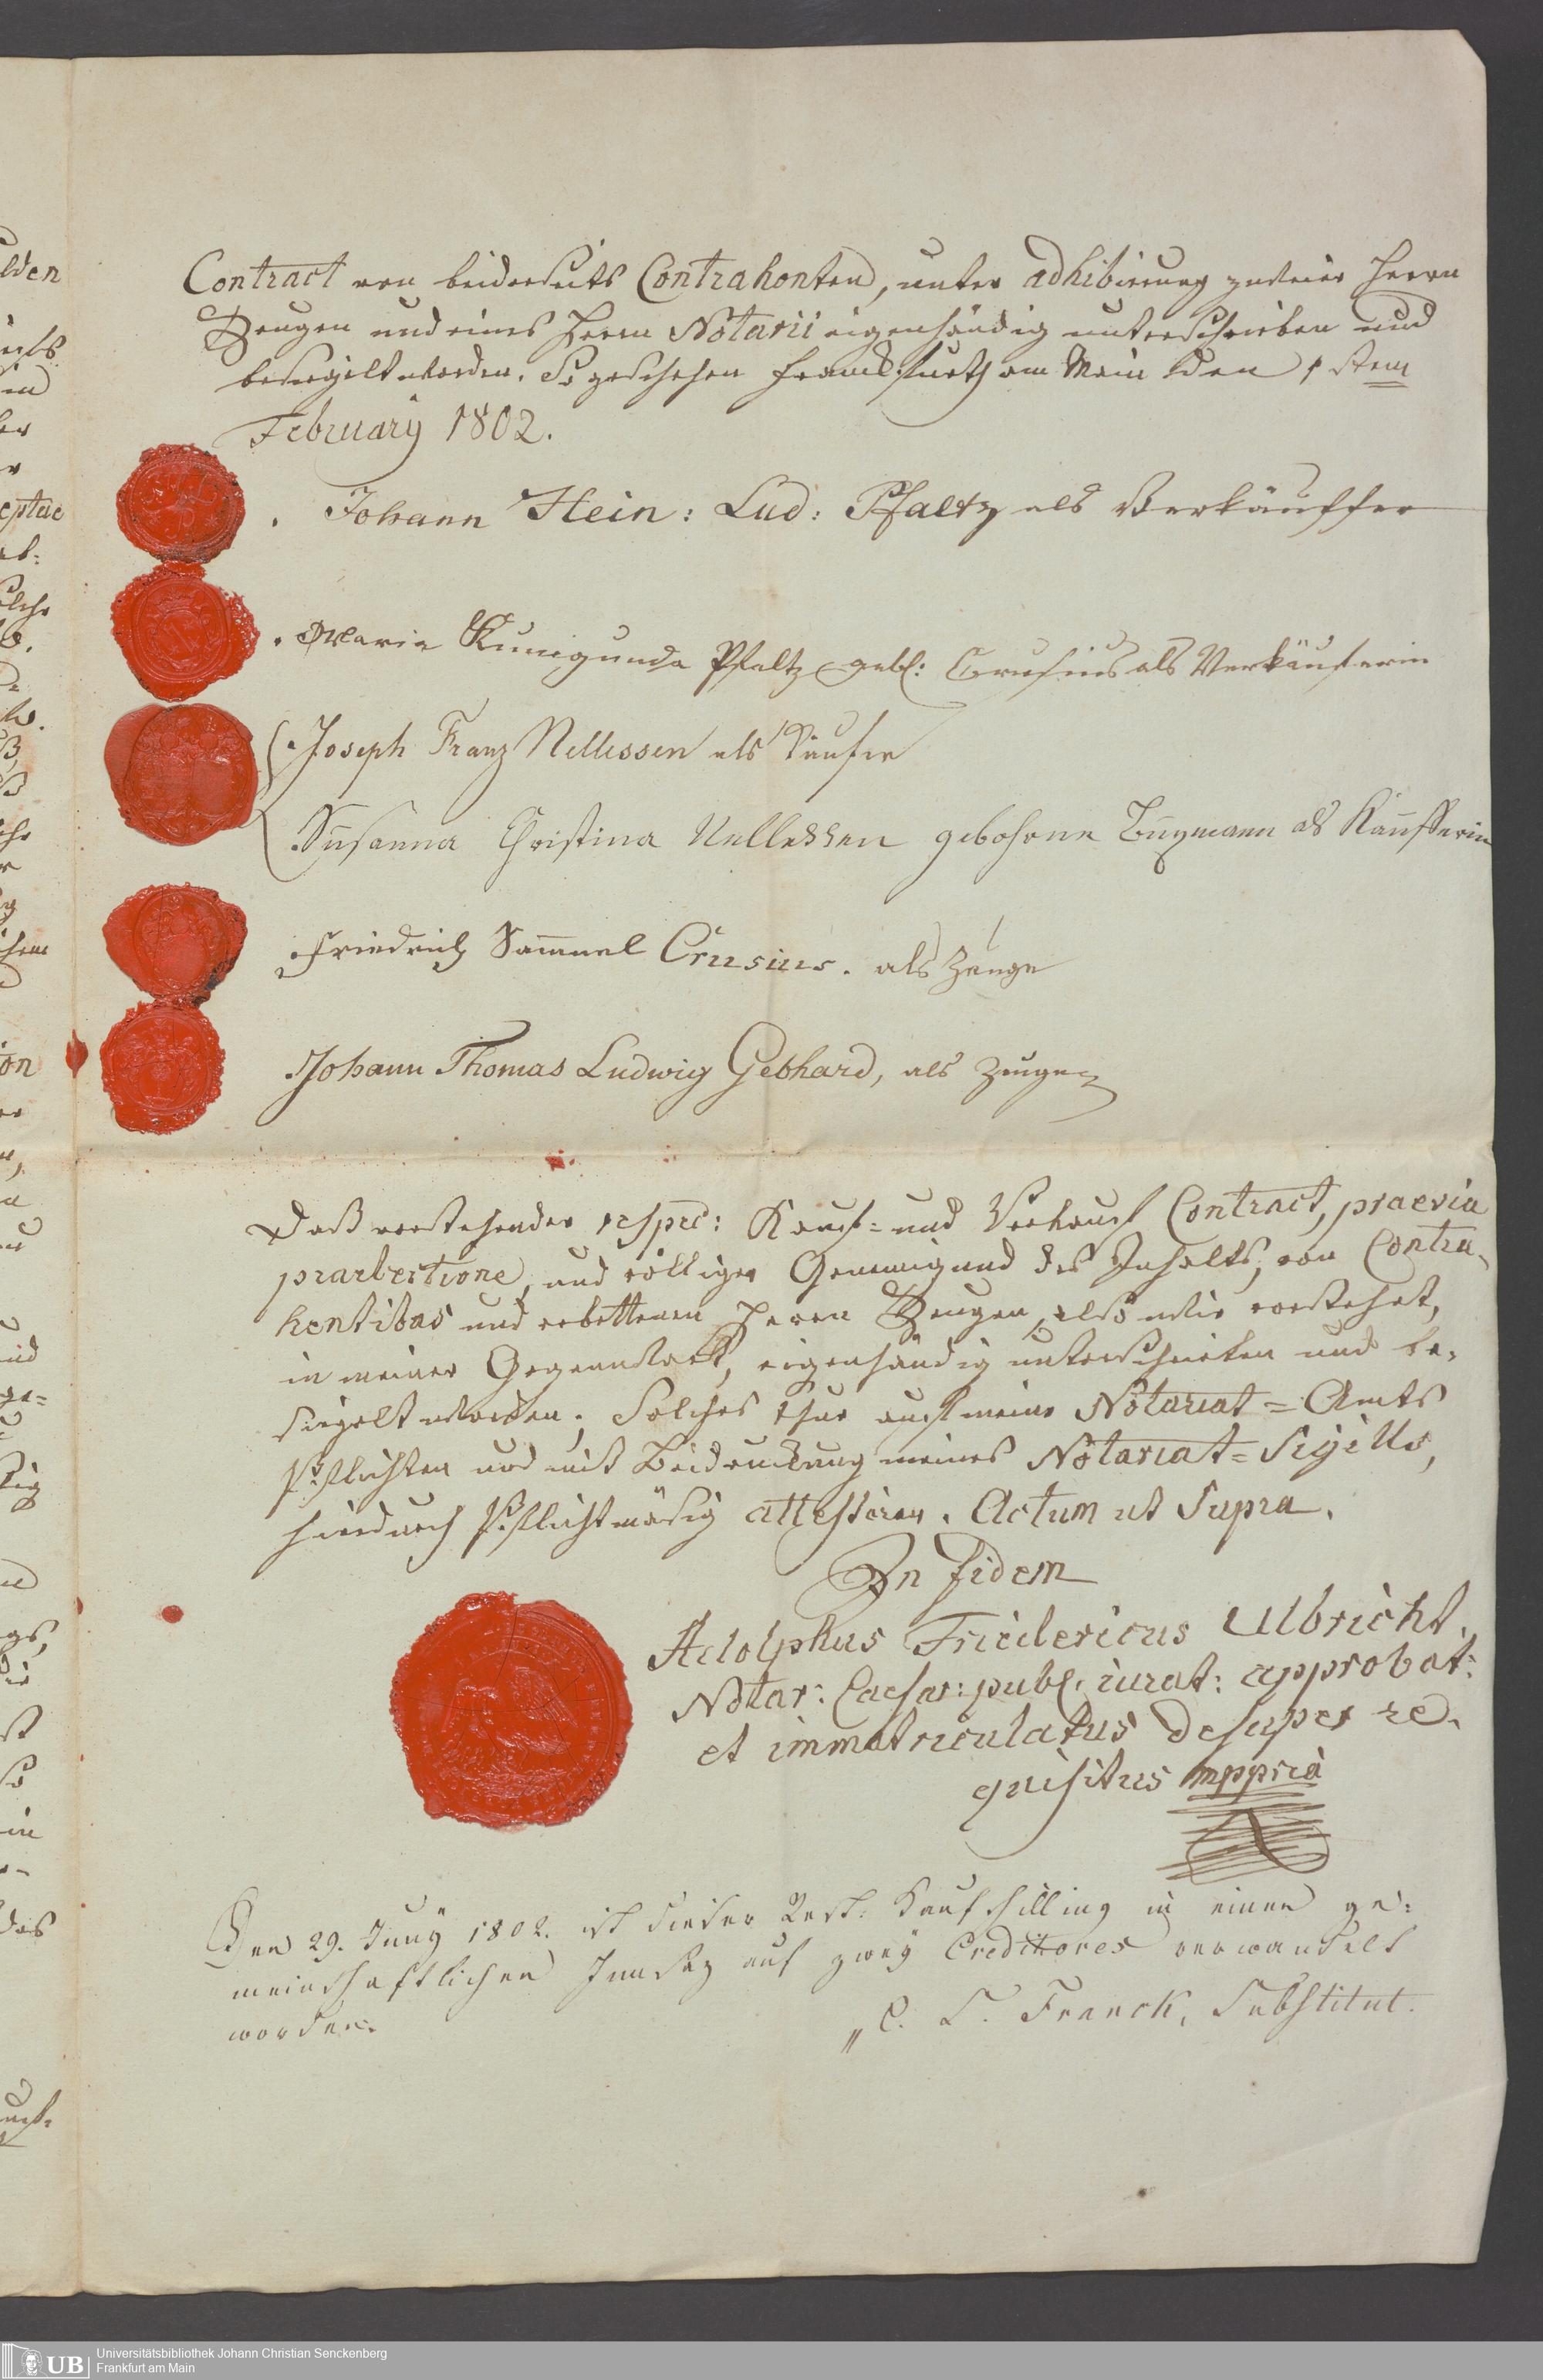 Contract von beiderseits Contrahenten, unter adhibirung zweier Herrn
Zeugen und eines Herrn Notarii eigenhändig unterschrieben und
besiegelt worden. So geschehen Frankfurth am Main den 1sten
February 1802.
Johann Hein: Lud: Pfaltz als Verkäuffer
Maria Kunigunda Pfaltz geb: Crusius als Verkäuferin
Joseph Franz Nellessen als Käufer
Susanna Christina Nellessen gebohrne als Käufferin
Friedrich Samuel Crusius. als Zeuge
Johann Thomas Ludwig Gebhard, als Zeuge
Daß vorstehender respec: Kauf= und Verkauf Contract, praevia
praelectione, und völliger Genemigung des Inhalts, von Contra-
hentibus und erbettenen Herrn Zeugen, also wie vorstehet,
in meiner Gegenwart, eigenhändig unterschrieben und be-
siegelt worden; Solches thue auf meine Notariat=Amts
Pflichten und mit Beidruckung meines Notariat=Sigills,
hierdurch Pflichtmäsig attestiren. Actum ut Supra.
In Fidem
Adolphus Fridericus Ulbricht.
Notar: Caesar: publ. iurat: approbat:
et immatriculatus desuper re-
quisitus mppria
Den 29. Juny 1802. ist dieser Rest. Kaufschilling in einen ge:
meinschaftlichen Insatz auf zwey Creditores verwandelt
worden.
C. L. Franck, Substitut.
UB
Universitätsbibliothek Johann Christian Senckenberg
Frankfurt am Main